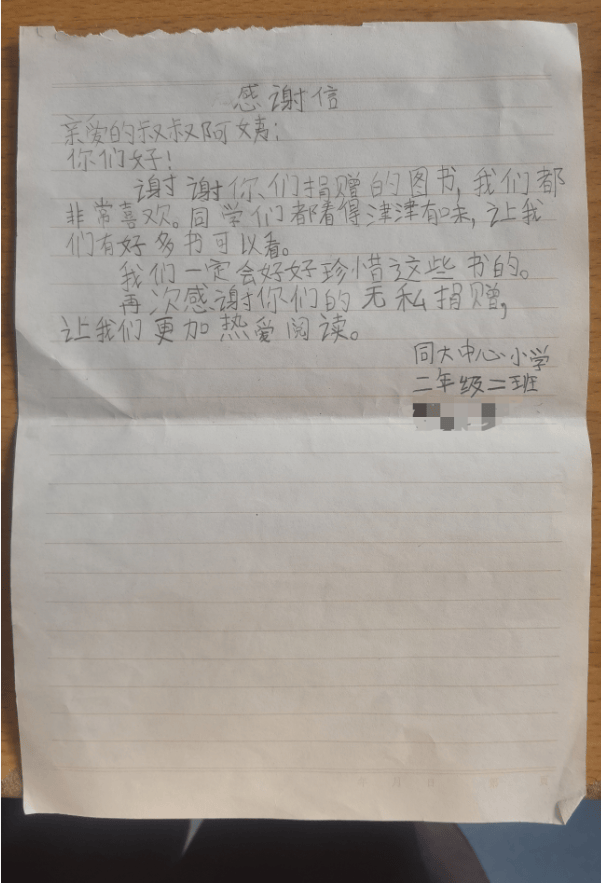 感谢信
亲爱的叔叔阿姨:
你们好!
谢谢你们捐赠的图书,我们都
非常喜欢。同学们都看得津津有味,让我
们有好多书可以看。
我们一定会好好珍惜这些书的。
再次感谢你们的无私捐赠,
让我们更加热爱阅读。
同大中心小学
二年级二班